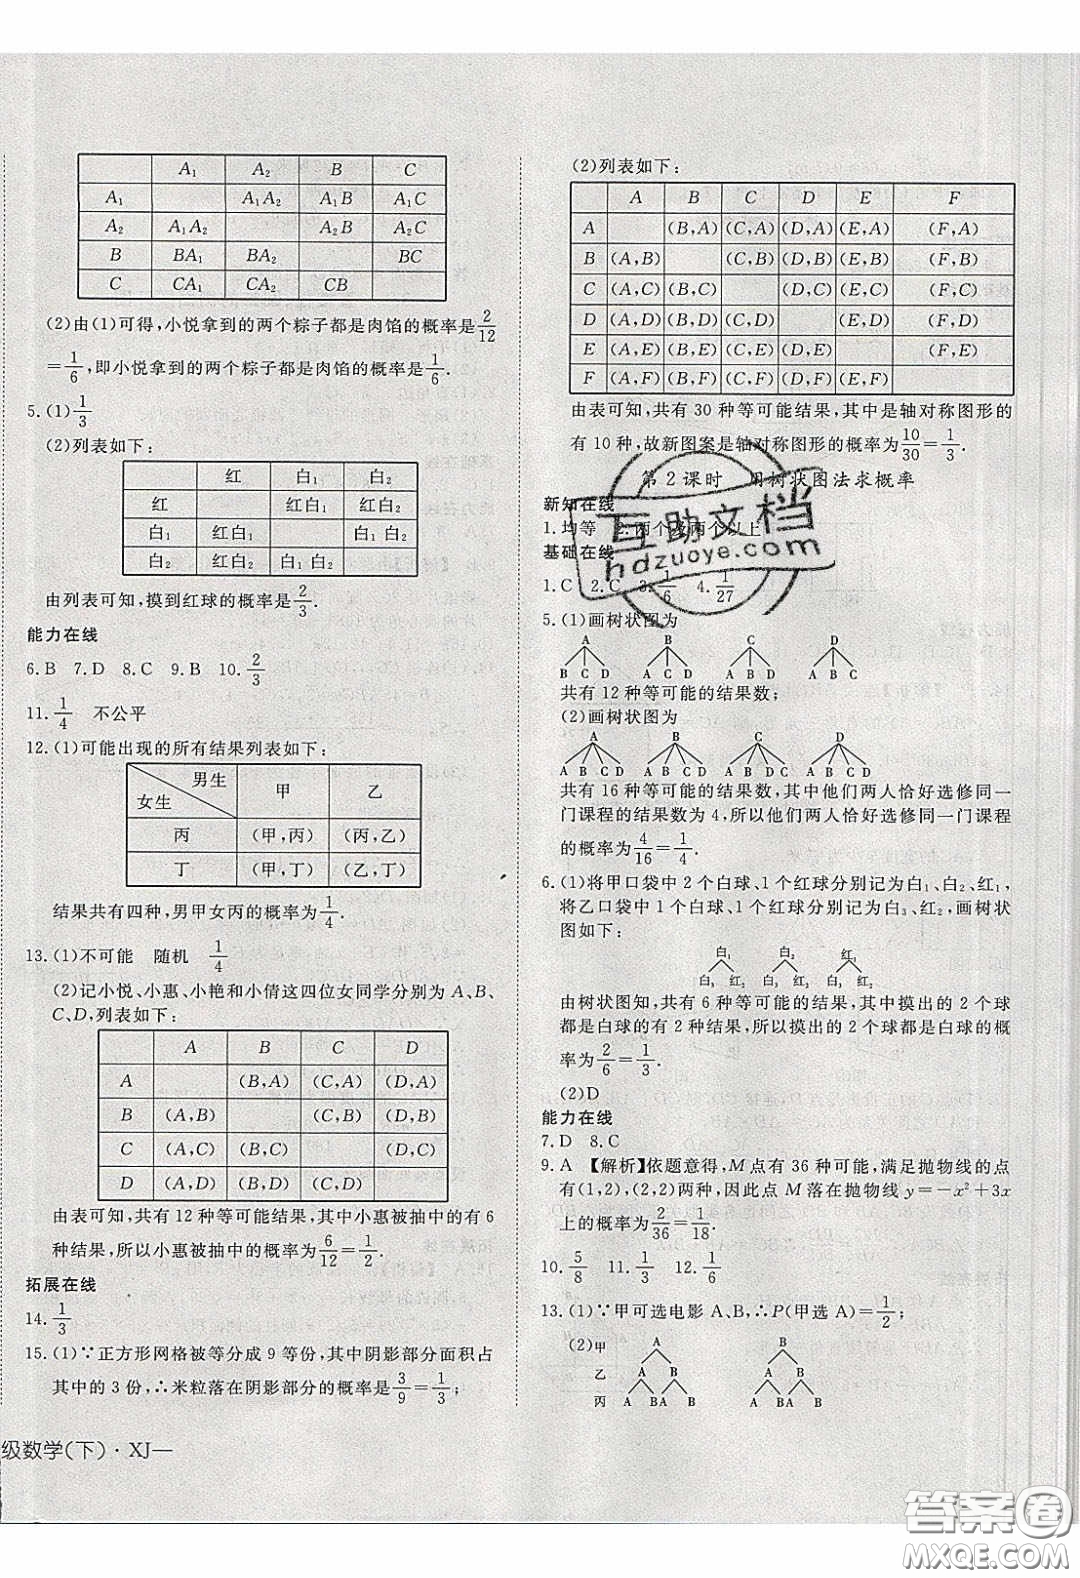 A₁ A₂ B C
A₁ A₁A₂ A₁B A₁C
A₂ A₁A₂ A₂B A₂C
B BA₁ BA₂ BC
C CA₁ CA₂ CB
(2)由(1)可得,小悦拿到的两个粽子都是肉馅的概率是2/12
=1/6,即小悦拿到的两个粽子都是肉馅的概率是1/6.
5.(1)1/3
(2)列表如下:
红 白₁ 白₂
红 红白₁ 红白₂
白₁ 红白₁ 白₁白₂
白₂ 红白₂ 白₁白₂
由列表可知,摸到红球的概率是2/3.
能力在线
6.B 7.D 8.C 9.B 10.2/3
11.1/4 不公平
12.(1)可能出现的所有结果列表如下:
男生 女生 甲 乙
丙 (甲,丙) (丙,乙)
丁 (甲,丁) (乙,丁)
结果共有四种,男甲女丙的概率为1/4.
13.(1)不可能 随机 1/4
(2)记小悦、小惠、小艳和小倩这四位女同学分别为A、B、
C、D,列表如下:
A B C D
A (B,A) (C,A) (D,A)
B (A,B) (C,B) (D,B)
C (A,C) (B,C) (D,C)
D (A,D) (B,D) (C,D)
由表可知,共有12种等可能结果,其中小惠被抽中的有6
种结果,所以小惠被抽中的概率为6/12=1/2.
拓展在线
14.1/3
15.(1)∵正方形网格被等分成9等份,其中阴影部分面积占
其中的3份,∴米粒落在阴影部分的概率是3/9=1/3;
级数学(下)·XJ—
(2)列表如下:
A B C D E F
A (B,A) (C,A) (D,A) (E,A) (F,A)
B (A,B) (C,B) (D,B) (E,B) (F,B)
C (A,C) (B,C) (D,C) (E,C) (F,C)
D (A,D) (B,D) (C,D) (E,D) (F,D)
E (A,E) (B,E) (C,E) (D,E) (F,E)
F (A,F) (B,F) (C,F) (D,F) (E,F)
由表可知,共有30种等可能结果,其中是轴对称图形的
有10种,故新图案是轴对称图形的概率为10/30=1/3.
第2课时 用树状图法求概率
新知在线
1.均等 2.两个或两个以上
基础在线
1.C 2.C 3.1/6 4.1/27
5.(1)画树状图为
A B C D
B C D A C D A B D A B C
共有12种等可能的结果数;
(2)画树状图为
A B C D
A B C D A B C D A B D C A B C D
共有16种等可能的结果数,其中他们两人恰好选修同一
门课程的结果数为4,所以他们两人恰好选修同一门课程
的概率为4/16=1/4.
6.(1)将甲口袋中2个白球、1个红球分别记为白₁、白₂、红₁,
将乙口袋中1个白球、1个红球分别记为白₃、红₂,画树状
图如下:
白₁ 白₂ 红₁
白₃ 红₂ 白₃ 红₂ 白₃ 红₂
由树状图知,共有6种等可能的结果,其中摸出的2个球
都是白球的有2种结果,所以摸出的2个球都是白球的概
率为2/6=1/3.
(2)D
能力在线
7.D 8.C
9.A 【解析】依题意得,M点有36种可能,满足抛物线的点
有(1,2),(2,2)两种,因此点M落在抛物线y=-x²+3x
上的概率为2/36=1/18.
10.5/8 11.1/3 12.1/6
13.(1)∵甲可选电影A、B,∴P(甲选A)=1/2;
(2)甲 A B
乙 A B A B
丙 A BA B A BA B
互助文档
hdzuoye.com
答案圈
MXQE.COM